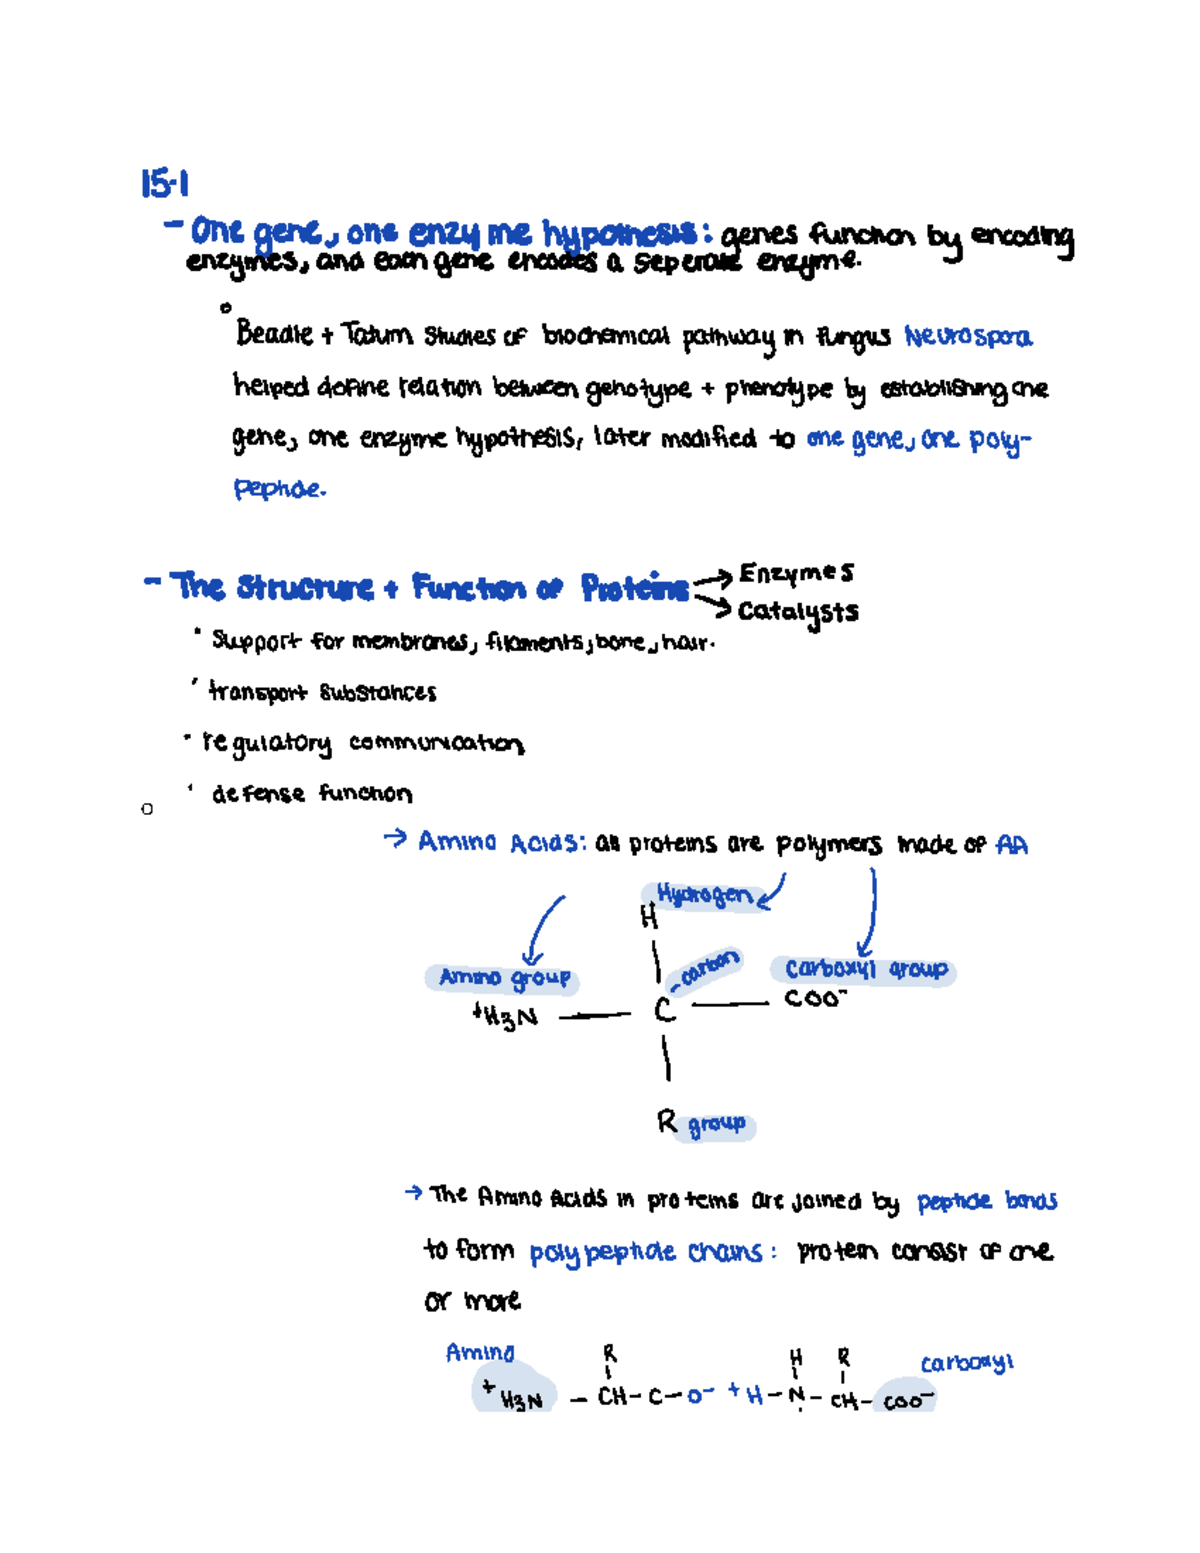 15.1
- One gene, one enzyme hypothesis: genes function by encoding
enzymes, and each gene encodes a seperate enzyme.
Beadle + Tatum Studies of biochemical pathway in fungus Neurospora
helped define relation between genotype + phenotype by establishing one
gene, one enzyme hypothesis, later modified to one gene, one poly-
peptide.
- The Structure + Function of Proteins → Enzymes
→ Catalysts
· Support for membranes, filaments, bone, hair.
· transport substances
· regulatory communication
· defense function
→ Amino Acids: all proteins are polymers made of AA
Hydrogen
H
Amino group
- carbon
Carboxyl group
+H3N — C — COO-
R group
→ The Amino Acids in proteins are joined by peptide bonds
to form polypeptide chains: protein consist of one
or more
Amino R H R carboxyl
+H3N - CH - C - O- + H - N - CH - COO-